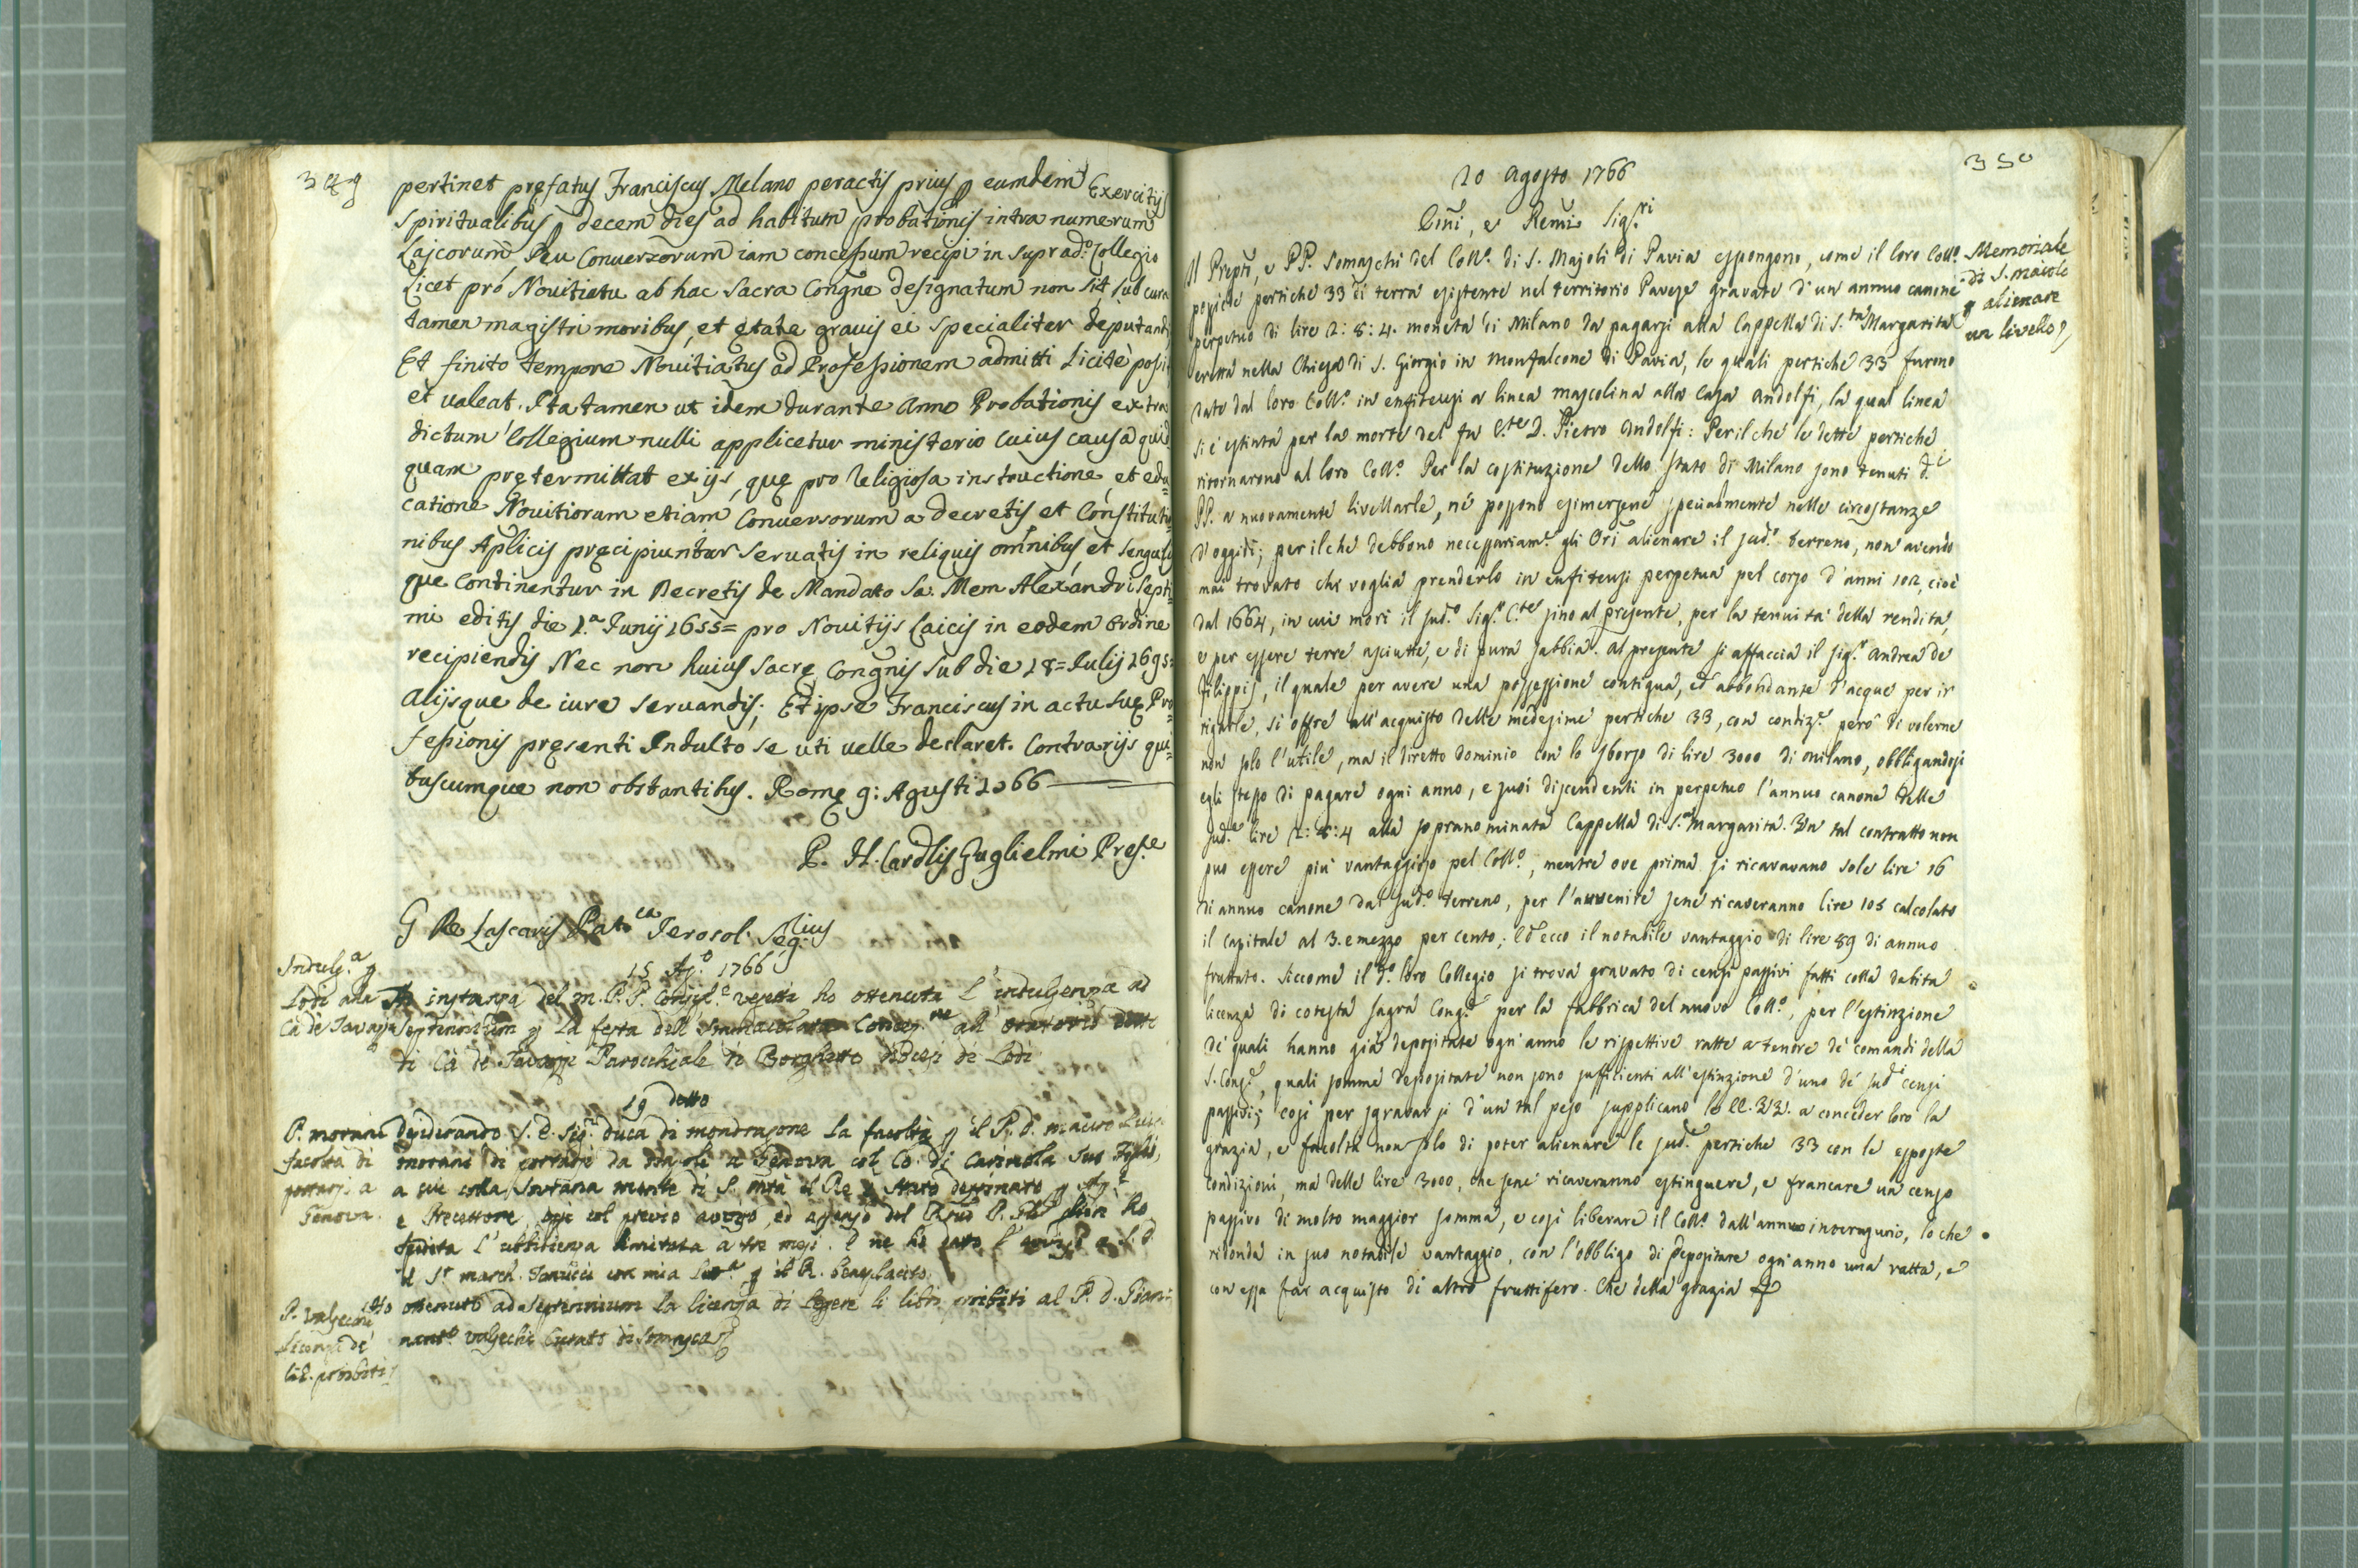 349
pertinet pręfatus Franciscus Melano peractis prius p eumdem Exercitijs
Spiritualibus p decem dies ad habitum probationis intra numerum
Laicorum seu Conversorum iam concessum recipi in suprad.º Collegio
Licet pro Novitiatu ab hac Sacra Congñe designatum non sit, sub cura
tamen magistri moribus, et ętate gravis ei specialiter deputandi
Et finito tempore Novitiatus ad Professionem admitti Licitè possit
et valeat. Ita tamen ut idem durante Anno Probationis extra
dictum Collegium nulli applicetur ministerio cuius causa quid=
quam prętermittat ex ijs, quę pro Religiosa instructione, et edu=
catione Novitiorum etiam Conversorum a decretis et Constitutio
nibus Aplicis pręcipiuntur servatis in reliquis omnibus, et singulis
que continentur in Decretis de Mandato Sa: Mem Alexandri Septi=
mi editis die 1.ª Junij 1655= pro Novitijs Laicis in eodem Ordine
recipiendis Nec non huius Sacrę Congñis sub die 18= Julij 1695=
Alijsque de iure servandis; Et ipse Franciscus in actu suę Pro=
fessionis presenti Indulto se uti velle declaret. Contrarijs qui=
buscumque non obstantibus. Romę 9: Agusti 1766
P. H. Cardlis Guglielmi Pref.e
G De Lascaris Pat.ca Jerosol. Seg.lius
15 Ag.º 1766
Indulg.ª p
Lodi alla
Cà de Tavazzi
Ad instanza del m. P. P. Consigl.e Vezetti ho ottenuta l'indulgenza ad
Septennium p la festa dell'Immacolata Concez.ne all'oratorio detto
di Cà de Tavazzi Parocchiale di Borghetto diocesi de Lodi
19 detto
P. Morani
facoltà di
portarsi a
Genova.
desiderando S. E. Sig.r duca di mondragone la facoltà p il P. d. mauro Luigi
morani di portarsi da Napoli a Genova col Co. di Carinola suo Figlio,
a cui colla Sovrana mente di S. mtà il Re è stato destinato p Aj.º
e Precettore, oggi col previo avviso, ed assenso del Rmo P.
spedita l'ubbidienza limitata a tre mesi. E ne ho dato l'avviso a S. E.
il S.r march. Tanucci con mia lett.ª p il R. beneplacito.
P. Valsecchi
Licenza de
lib. proibiti
Ho ottenuto ad septennium la licenza di legere li libri proibiti al P. D. Giam=
Valsecchi Curato di Somasca
350
20 Agosto 1766
Emi, e Remi Sig.ri
Memoriale
di S. Maiolo
p alienare
un livello
Il Preptō, e PP. Somaschi del Coll.º di S. Majoli di Pavia espongono, come il loro Coll.º
possiede pertiche 33 di terra esistente nel territorio Pavese gravate d'un annuo canone
perpetuo di lire 2:8:4. moneta di Milano da pagarsi alla Cappella di S.ta Margarita
eretta nella Chiesa di S. Giorgio in Monfalcone di Pavia, le quali pertiche 33 furono
date dal loro Coll.º in enfiteusi a linea mascolina alla Casa Andolfi, la qual linea
si è estinta per la morte del fu C.te D. Pietro Andolfi: Perilché le dette pertiche
ritornarono al loro Coll.º Per la costituzione dello Stato di Milano sono tenuti d.i
PP. a nuovamente livellarle, né possono esimersene specialmente nelle circostanze
d'oggidì; perilché debbono necessariam.e gli Ori alienare il sud.º terreno, non avendo
mai trovato chi voglia prenderlo in enfiteusi perpetua pel corso d'anni 102, cioè
dal 1664, in cui morì il sud.º Sig.r C.te sino al presente, per la tenuità della rendita,
e per essere terre asciutte, e di pura sabbia. Al presente si affaccia il Sig.r Andrea de
Filippis, il quale per avere una possessione contigua, ed abbondante d'acque per ir
rigarle, si offre all'acquisto delle medesime pertiche 33, con condiz.e però di volerne
non solo l'utile, ma il diretto dominio con lo sborso di lire 3000 di Milano, obbligandosi
egli stesso di pagare ogni anno, e suoi discendenti in perpetuo l'annuo canone delle
sud.e lire 2:8:4 alla sopranominata Cappella di S.ª Margarita. Un tal contratto non
può essere più vantaggioso pel Coll.º, mentre ove prima si ricavavano sole lire 16
di annuo canone dal sud.º terreno, per l'avvenire sene ricaveranno lire 105 calcolato
il capitale al 3. e mezzo per cento; Ed ecco il notabile vantaggio di lire 89 di annuo
fruttato. Siccome il d.º loro Collegio si trova gravato di censi passivi fatti colla debita
licenza di cotesta Sagra Cong.e per la fabbrica del nuovo Coll.º, per l'estinzione
de' quali hanno già depositate ogn'anno le rispettive ratte a tenore de' comandi della
S. Cong.e, quali somme depositate non sono suficienti all'estinzione d'uno de' sud.i censi
passivi; così per sgravarsi d'un tal peso supplicano le EE. VV. a conceder loro la
grazia, e facoltà non solo di poter alienare le sud.e pertiche 33 con le esposte
condizioni, ma delle lire 3000, che sene ricaveranno estinguere, e francare un censo
passivo di molto maggior somma, e così liberare il Coll.º dall'annuo interusurio, lo che
ridonda in suo notabile vantaggio, con l'obbligo di depositare ogni anno una ratta, e
con essa far acquisto di altro fruttifero. Che della grazia